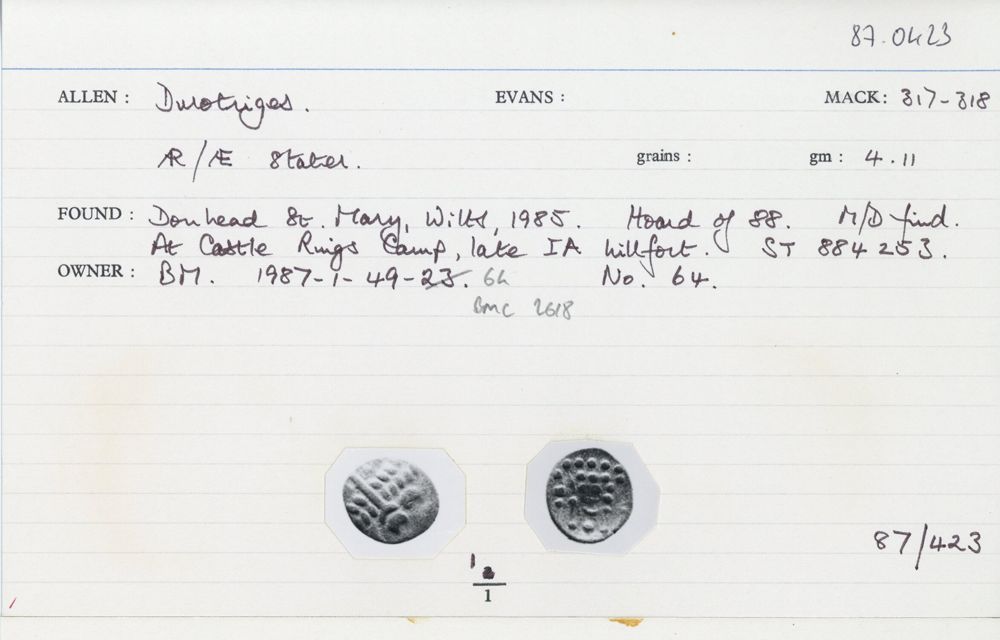 87.0423
ALLEN : Durotriges. EVANS : MACK: 317-318
ÆR/Æ Stater. grains : gm : 4.11
FOUND : Donhead St. Mary, Wilts, 1985. Hoard of 88. M/D find.
At Castle Rings Camp, late IA hillfort. ST 884 253.
OWNER : BM. 1987-1-49-23. 64 No. 64.
BMC 2618
87/423
1
1